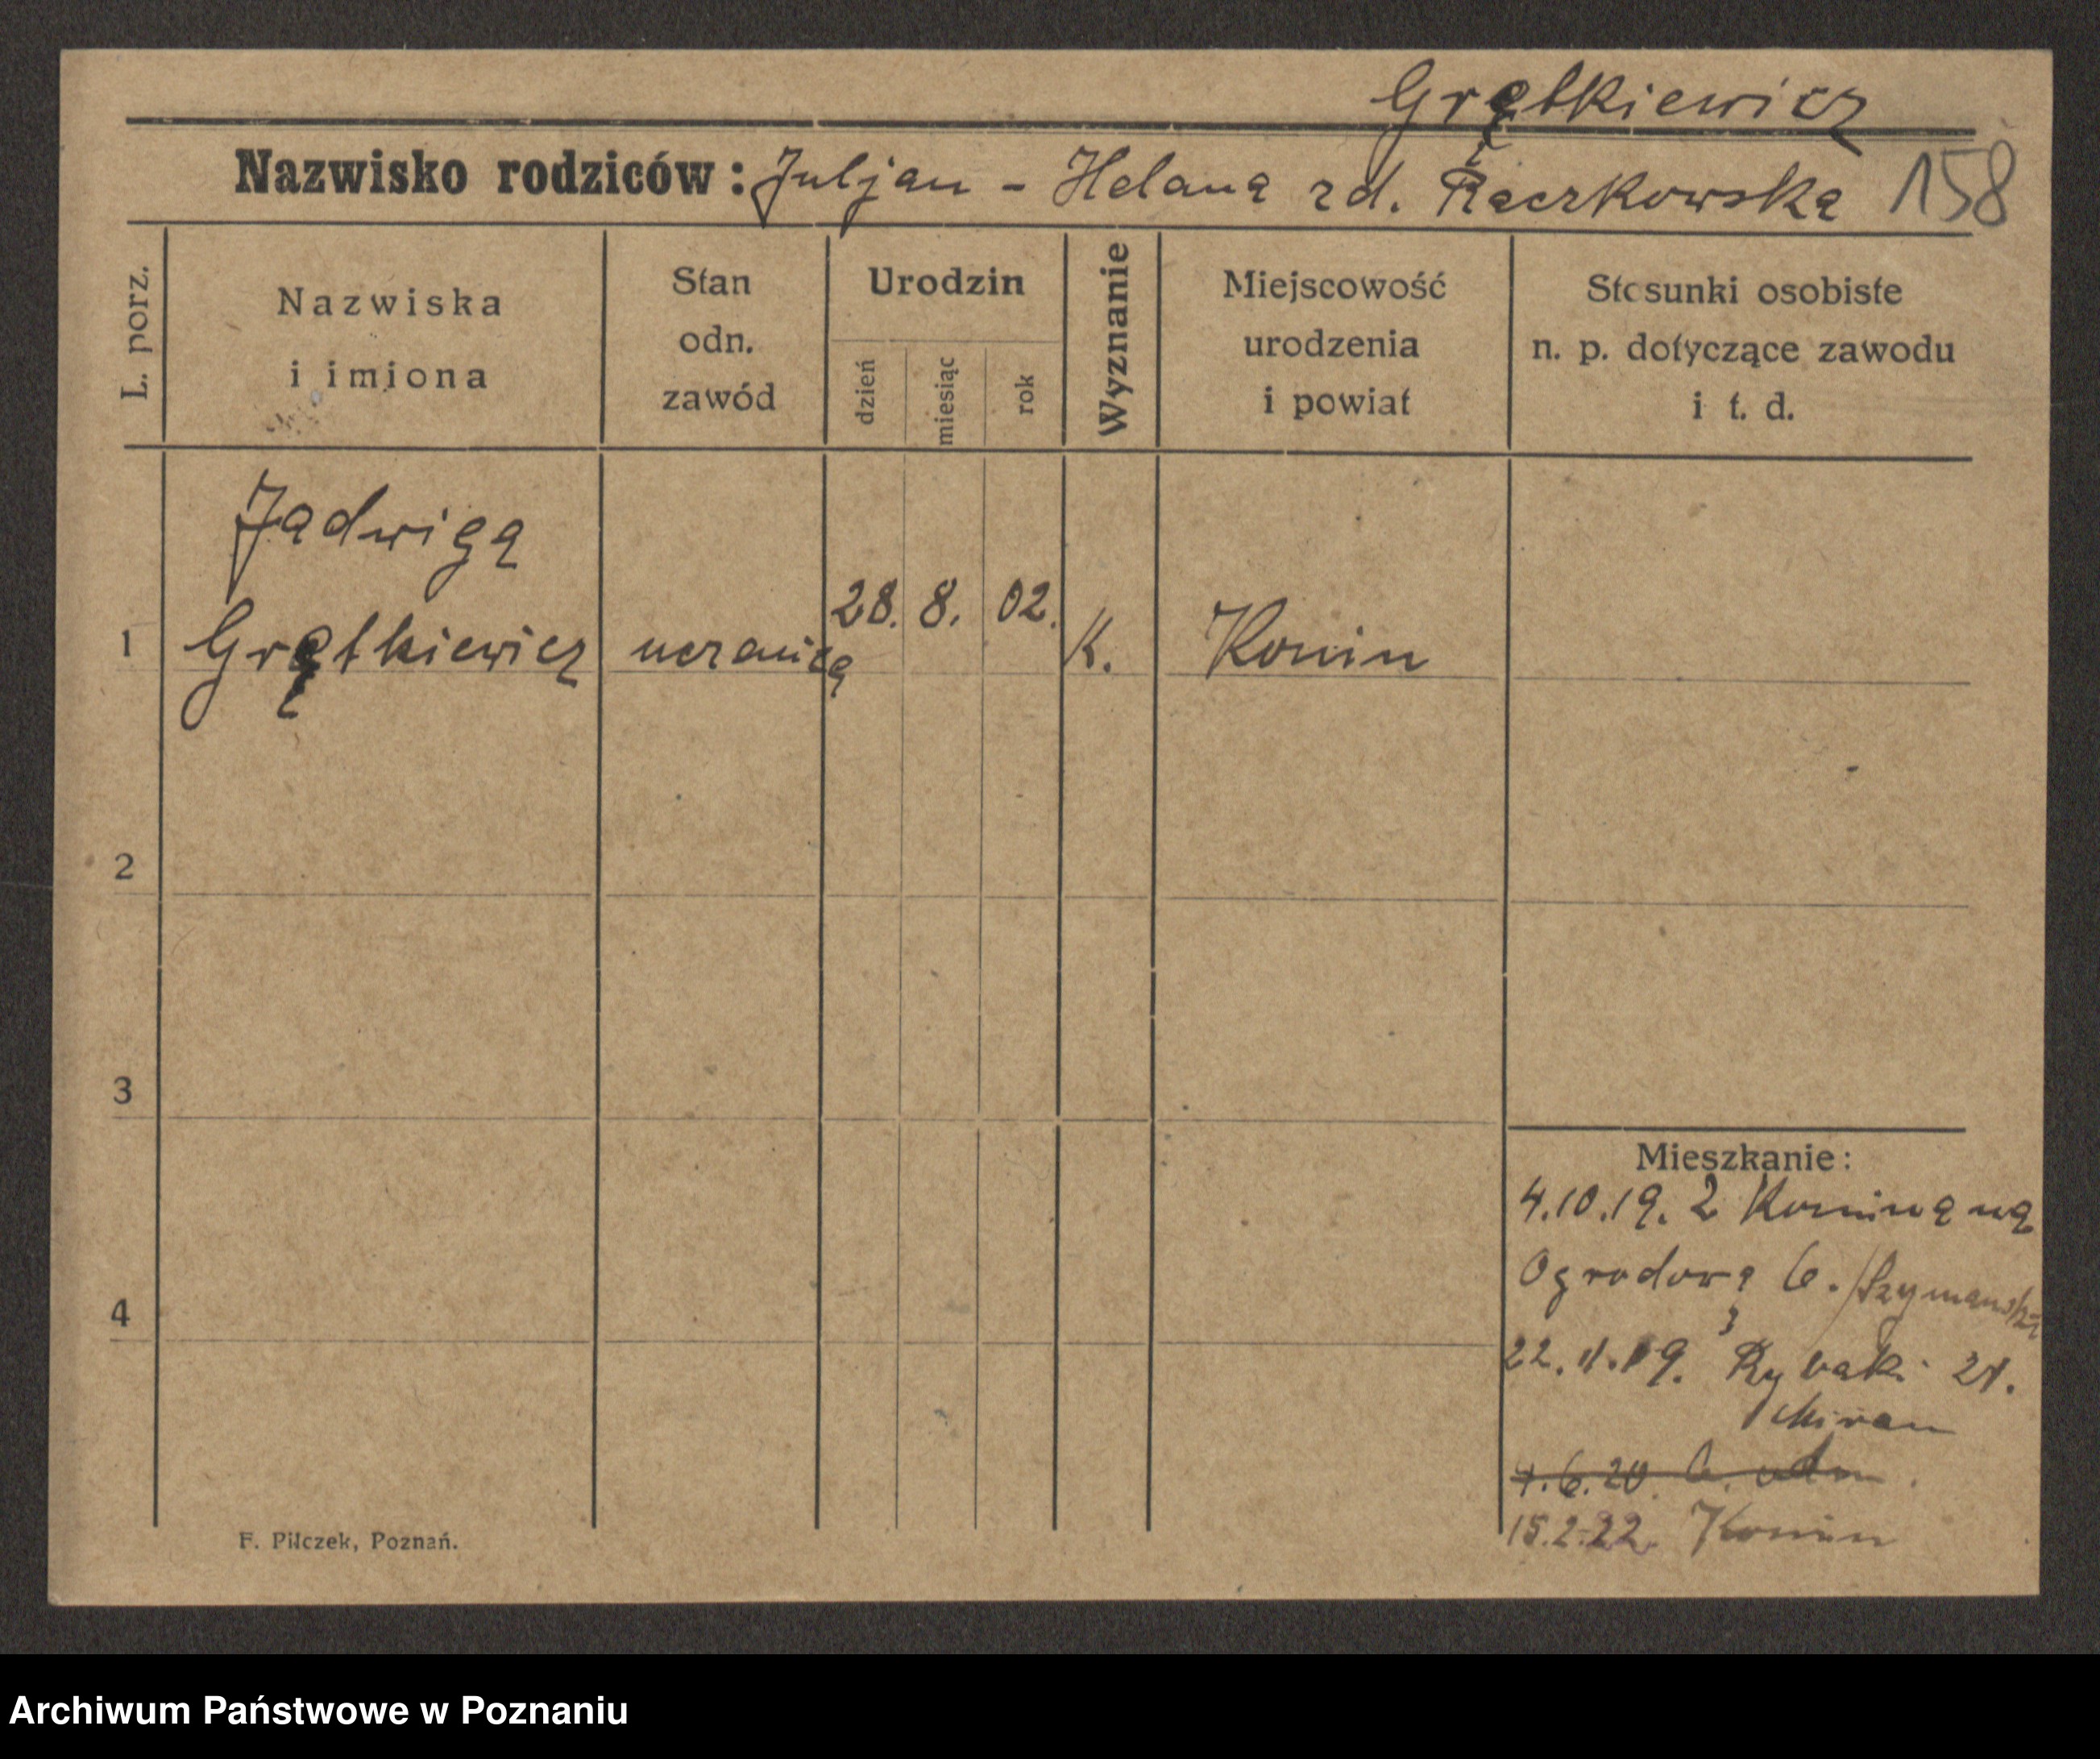 Grętkiewicz
Nazwisko rodziców: Juljan - Helena zd. Raczkowska 158
L. porz.
Nazwiska
i imiona
Stan
odn.
zawód
Urodzin
dzień
miesiąc
rok
Wyznanie
Miejscowość
urodzenia
i powiat
Stosunki osobiste
n. p. dotyczące zawodu
i t. d.
Jadwiga
1 Grętkiewicz uczenica 28. 8. 02. K. Konin
2
3
4
Mieszkanie:
4.10.19. z Konina na
Ogrodowa 6. /Szymańska
22.11.19. Rybaki 21.
4.6.20.
15.2.22. Konin
F. Pilczek, Poznań.
Archiwum Państwowe w Poznaniu